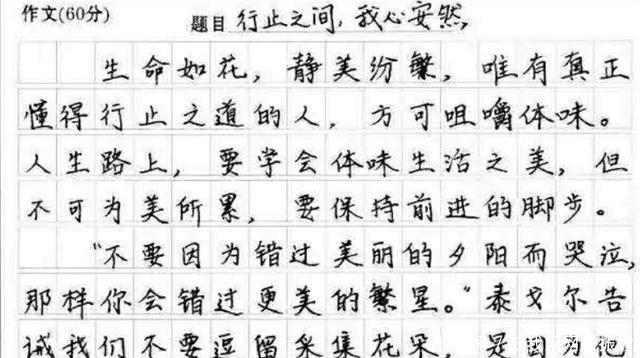 作文(60分) 题目 行止之间,我心安然,
生命如花，静美纷繁，唯有真正
懂得行止之道的人，方可咀嚼体味。
人生路上，要学会体味生活之美，但
不可为美所累，要保持前进的脚步。
“不要因为错过美丽的夕阳而哭泣,
那样你会错过更美的繁星。”泰戈尔告
诫我们不要逗留采集花朵，是